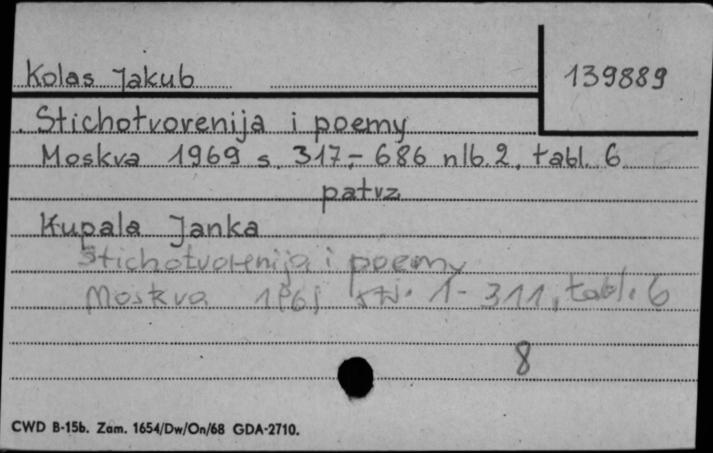 Kolas Jakub
139889
Stichotvorenija i poemy
Moskva 1969 s. 317,- 686 nlb. 2, tabl. 6
patrz
Kupala Janka
Stichotvorenija i poemy
Moskva 1969 str. 1- 311, tabl. 6
8
CWD B-15b. Zam. 1654/Dw/On/68 GDA-2710.